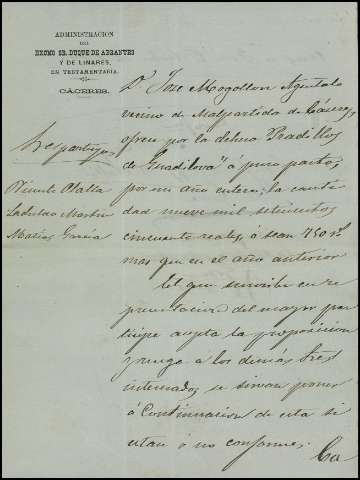 ADMINISTRACION
DEL
EXCMO SR. DUQUE DE ABRANTES
Y DE LINARES,
EN TESTAMENTARIA.
CÁCERES.
Dn Jose Mogollon
vecino de Malpartida de Cáceres,
ofrece por la dehesa "Pradillos
de Guadiloba" á puro pasto,
por un año entero; la canti
dad nueve mil setecientos
cincuenta reales, ó sean 750 rs
mas que en el año anterior
El que suscribe en re
presentacion del mayor par
tícipe acepta la proposicion
y ruega a los demás tres
interesados, se sirvan poner
á continuacion de esta si
estan ó no conformes.
Vicente
Ladislao Martin
Matias Garcia
Ca